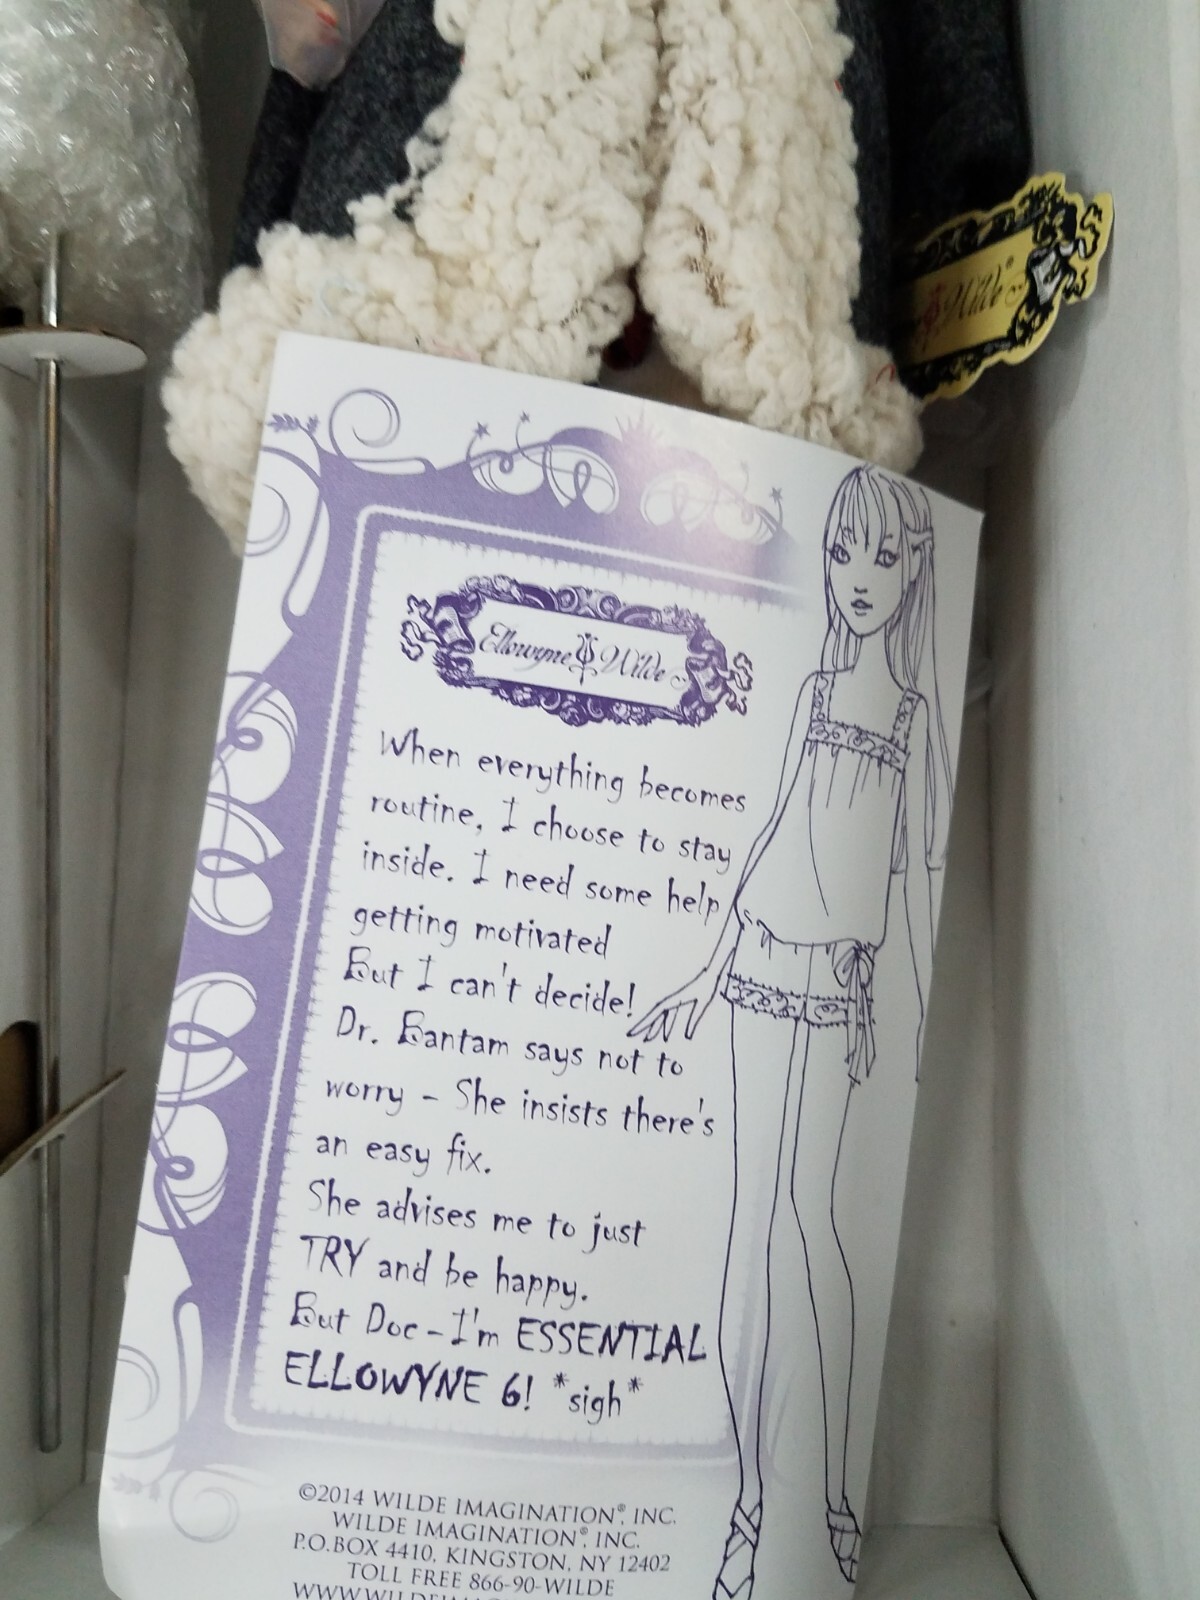 Wilde®
Ellowyne Wilde
When everything becomes
routine, I choose to stay
inside. I need some help
getting motivated
But I can't decide!
Dr. Bantam says not to
worry - She insists there's
an easy fix.
She advises me to just
TRY and be happy.
But Doc - I'm ESSENTIAL
ELLOWYNE 6! *sigh*
©2014 WILDE IMAGINATION®, INC.
WILDE IMAGINATION®, INC.
P.O.BOX 4410, KINGSTON, NY 12402
TOLL FREE 866-90-WILDE